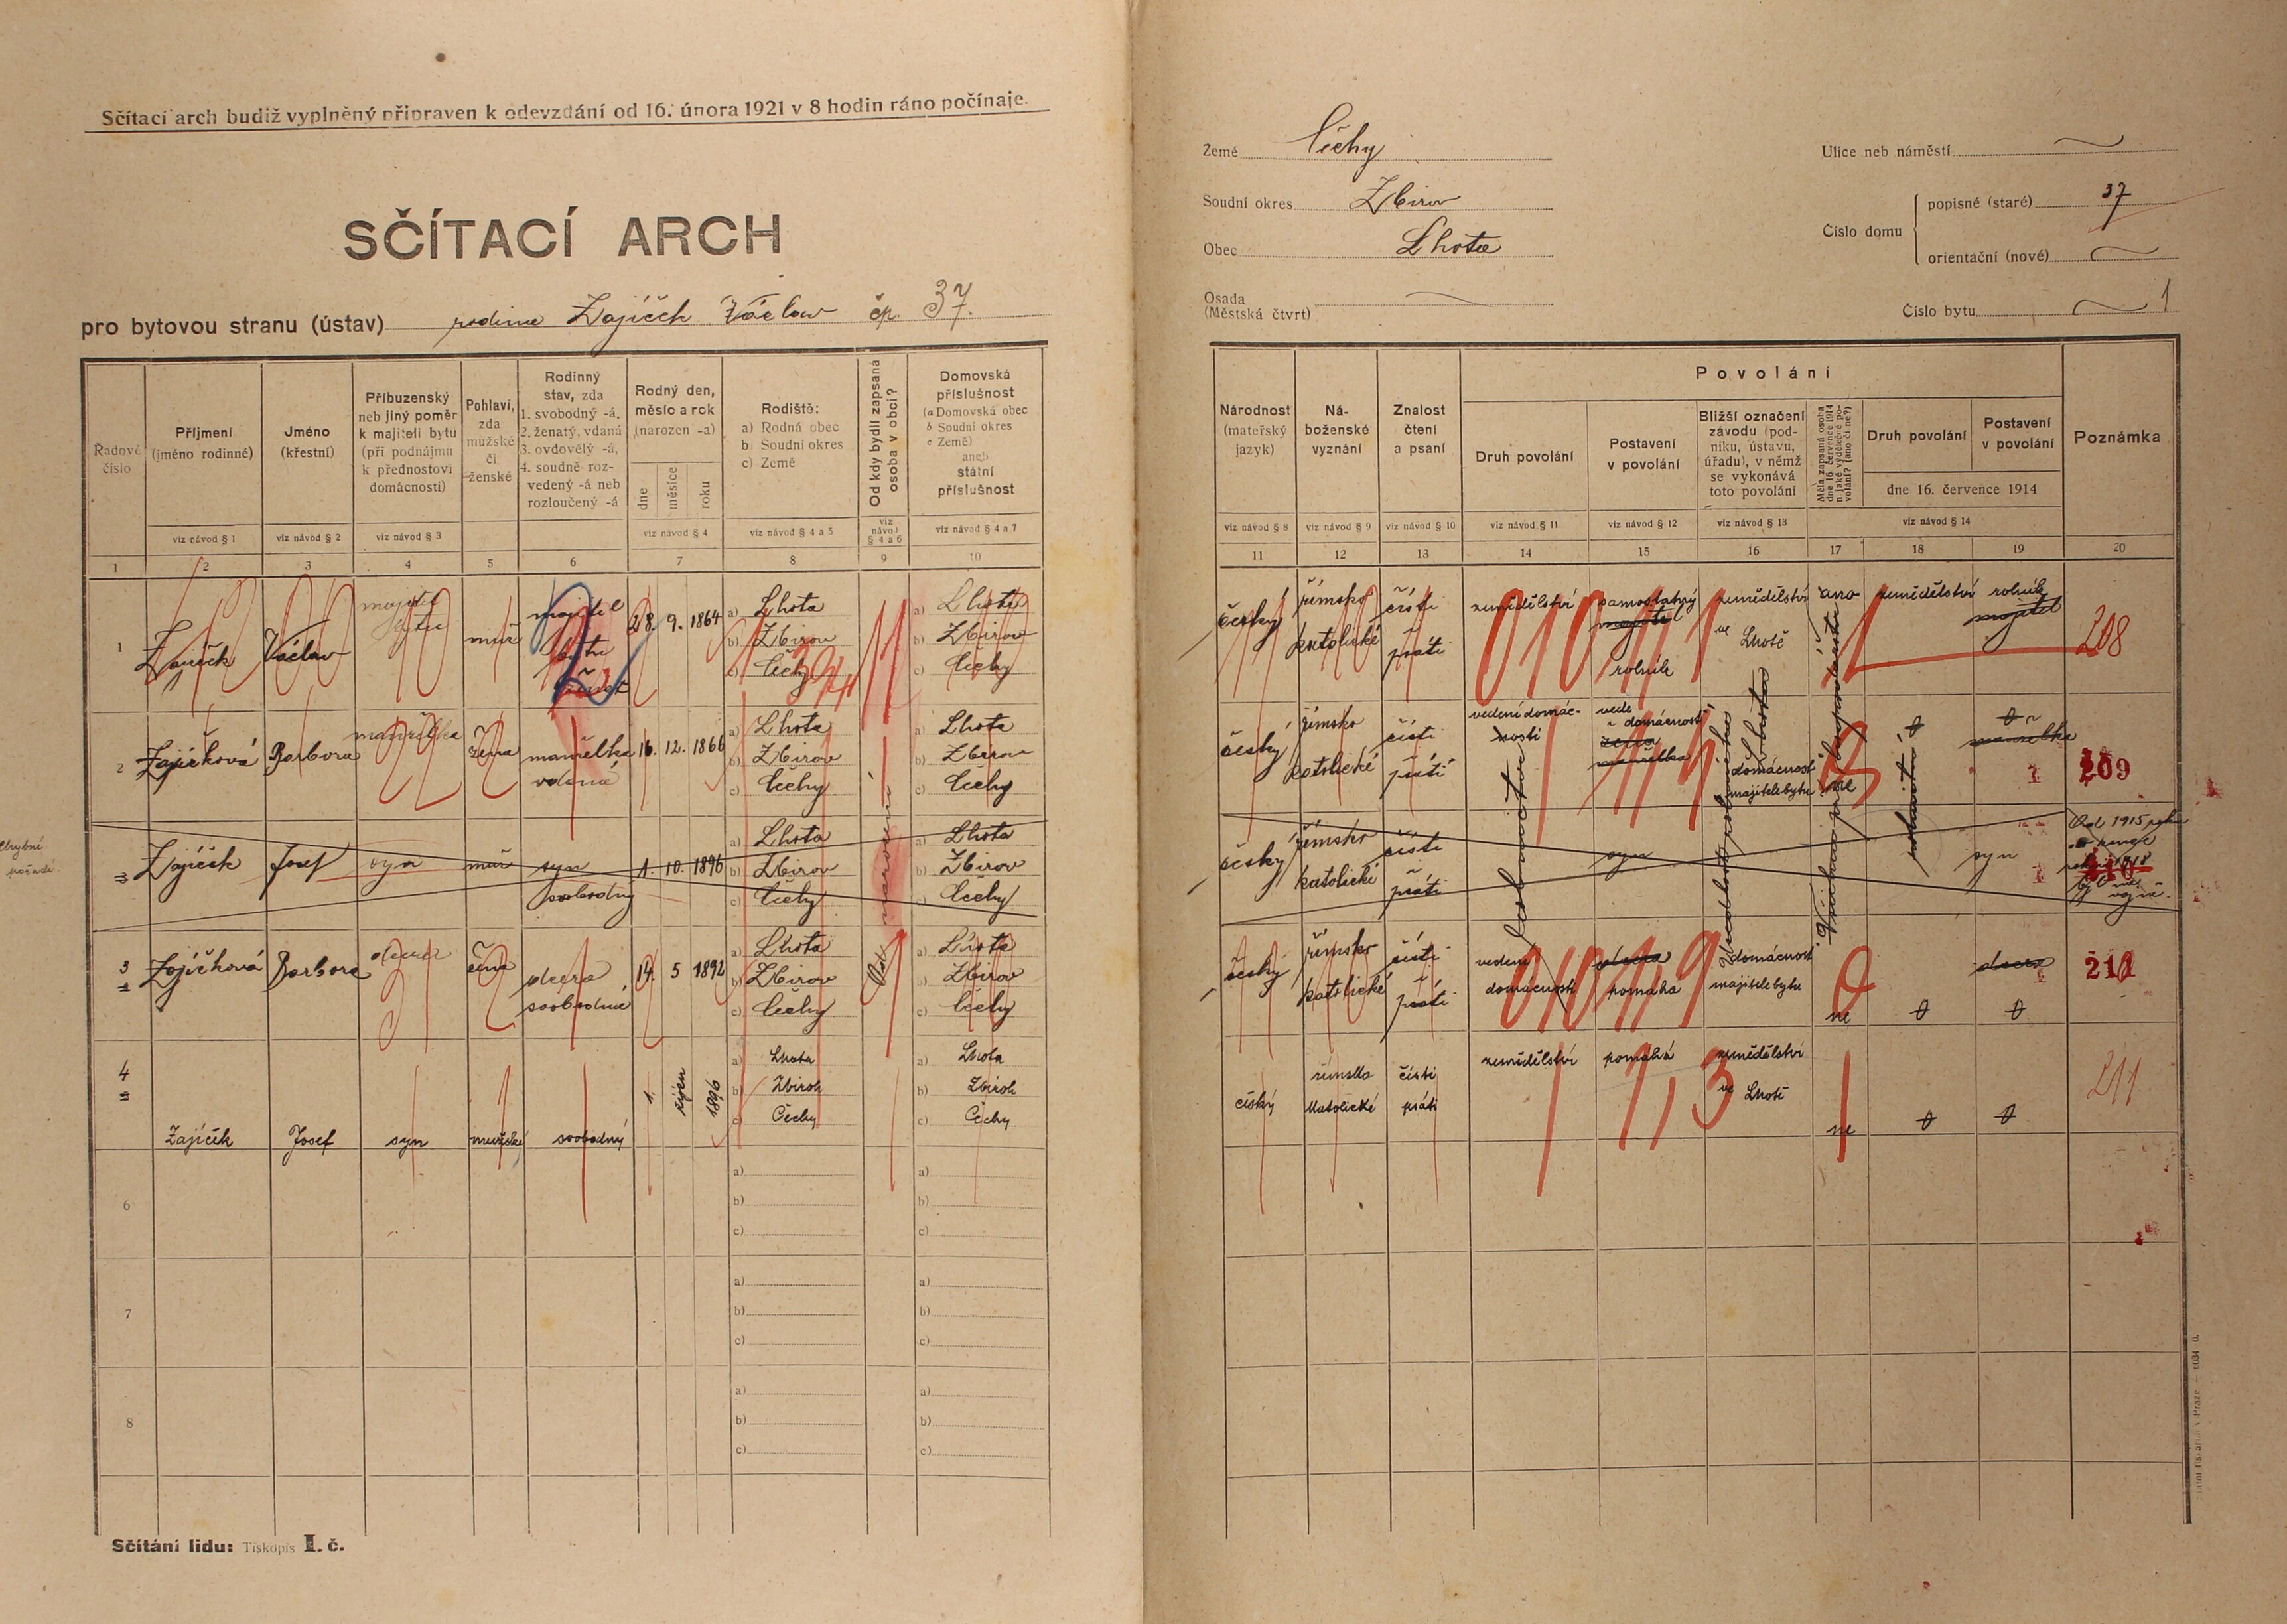 Sčítací arch budiž vyplněný připraven k odevzdání od 16. února 1921 v 8 hodin ráno počínaje.
SČÍTACÍ ARCH
pro bytovou stranu (ústav) rodina Zajíček Václav čp. 37.
Země Čechy
Soudní okres Zbirov
Obec Lhota
Osada
(Městská čtvrt)
Ulice neb náměstí
Číslo domu
popisné (staré) 37
orientační (nové)
Číslo bytu 1
Řadové číslo
Příjmení
(jméno rodinné)
viz návod § 1
Jméno
(křestní)
viz návod § 2
Příbuzenský
neb jiný poměr
k majiteli bytu
(při podnájmu
k přednostovi
domácnosti)
viz návod § 3
Pohlaví,
zda
mužské
či
ženské
Rodinný
stav, zda
1. svobodný -á,
2. ženatý, vdaná
3. ovdovělý -á,
4. soudně roz-
vedený -á neb
rozloučený -á
Rodný den,
měsíc a rok
(narozen -a)
dne
měsíce
roku
viz návod § 4
Rodiště:
a) Rodná obec
b) Soudní okres
c) Země
viz návod § 4 a 5
Od kdy bydlí zapsaná
osoba v obci?
viz
návod
§ 4 a 6
Domovská
příslušnost
(a Domovská obec
b Soudní okres
c Země)
aneb
státní
příslušnost
viz návod § 4 a 7
1 2 3 4 5 6 7 8 9 10
Národnost
(mateřský
jazyk)
viz návod § 8
Ná-
boženské
vyznání
viz návod § 9
Znalost
čtení
a psaní
viz návod § 10
Povolání
Druh povolání
viz návod § 11
Postavení
v povolání
viz návod § 12
Bližší označení
závodu (pod-
niku, ústavu,
úřadu), v němž
se vykonává
toto povolání
viz návod § 13
Měla zapsaná osoba
dne 16. července 1914
nějaké výdělečné po-
volání? (ano či ne?)
Druh povolání
Postavení
v povolání
dne 16. července 1914
viz návod § 14
Poznámka
11 12 13 14 15 16 17 18 19 20
1
Zajíček
Václav
majitel
bytu
muž
majitel
bytu
ženat
28. 9. 1864
a) Lhota
b) Zbirov
c) Čechy
a) Lhota
b) Zbirov
c) Čechy
český
římsko
katolické
čísti
psáti
zemědělství
samostatný
majitel
rolník
zemědělství
ve Lhotě
ano
zemědělství
rolník
majitel
208
2
Zajíčková
Barbora
manželka
žena
manželka
vdaná
16. 12. 1866
a) Lhota
b) Zbirov
c) Čechy
Od narození
a) Lhota
b) Zbirov
c) Čechy
český
římsko
katolické
čísti
psáti
vedení domác-
nosti
vede
domácnost
žena
manželka
domácnost
majitele bytu
ne
manželka
209
Chybné
pořadí
3
Zajíček
Josef
syn
muž
syn
svobodný
1. 10. 1896
a) Lhota
b) Zbirov
c) Čechy
a) Lhota
b) Zbirov
c) Čechy
český
římsko
katolické
čísti
psáti
syn
syn
Od 1915 roku
210
3
Zajíčková
Barbora
dcera
žena
dcera
svobodná
14. 5 1892
a) Lhota
b) Zbirov
c) Čechy
a) Lhota
b) Zbirov
c) Čechy
český
římsko
katolické
čísti
psáti
vedení
domácnosti
dcera
pomáhá
domácnost
majitele bytu
ne
dcera
4
Zajíček
Josef
syn
mužské
svobodný
1. říjen 1896
a) Lhota
b) Zbiroh
c) Čechy
a) Lhota
b) Zbiroh
c) Čechy
český
římsko
katolické
čísti
psáti
zemědělství
pomáhá
zemědělství
ve Lhotě
ne
211
6
a)
b)
c)
a)
b)
c)
7
a)
b)
c)
a)
b)
c)
8
a)
b)
c)
a)
b)
c)
Sčítání lidu: Tiskopis I. č.